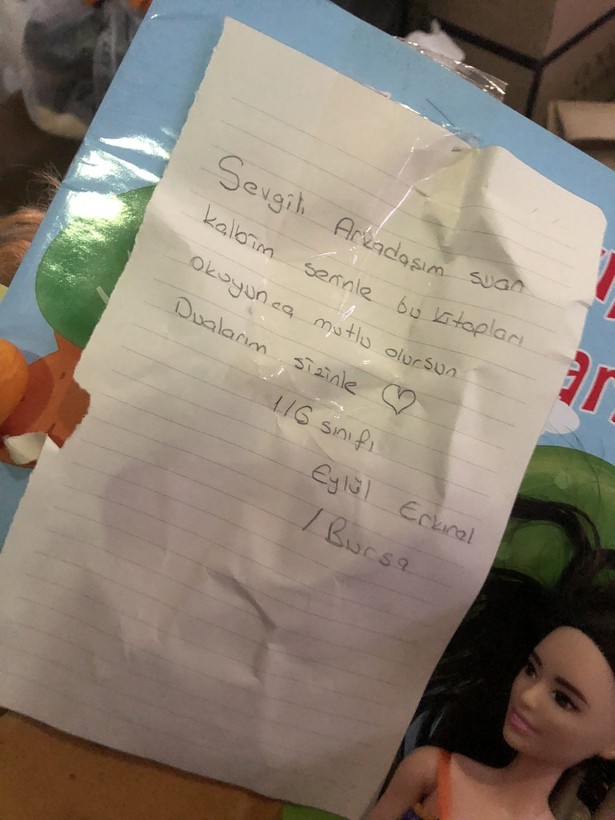 Sevgili Arkadaşım suan
kalbim seninle bu kitapları
okuyunca mutlu olursun
Dualarım sizinle ♡
1/G sınıfı
Eylül Erkıral
/Bursa